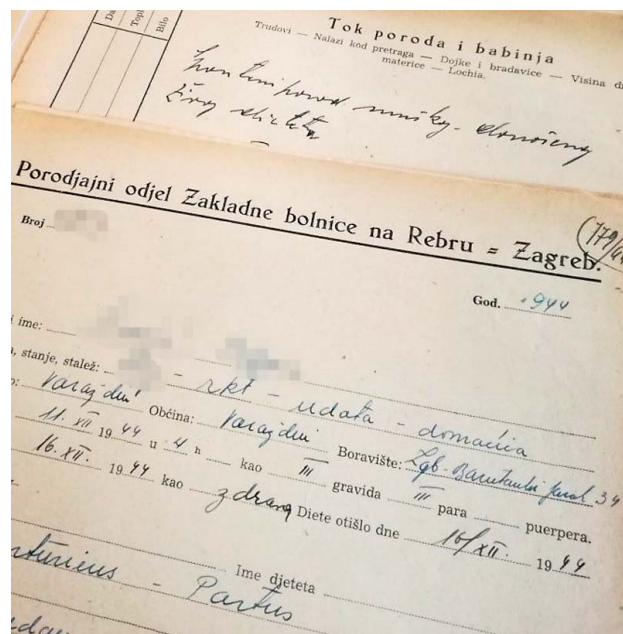 Da
Topl
Bilo
Tok poroda i babinja
Trudovi — Nalazi kod pretraga — Dojke i bradavice — Visina d
materice — Lochia.
donošeny
živo dijete
Porodjajni odjel Zakladne bolnice na Rebru = Zagreb.
(779/44
Broj
God. 1944
i ime:
, stanje, stalež: - rkt - udata - domaćica
o: Varaždin Općina: Varaždin Boravište: Zgb.
11. XII 1944 u 4 h kao III gravida III para puerpera.
16. XII. 1944 kao zdrava Diete otišlo dne 16/XII. 1944
Ime djeteta
Partus